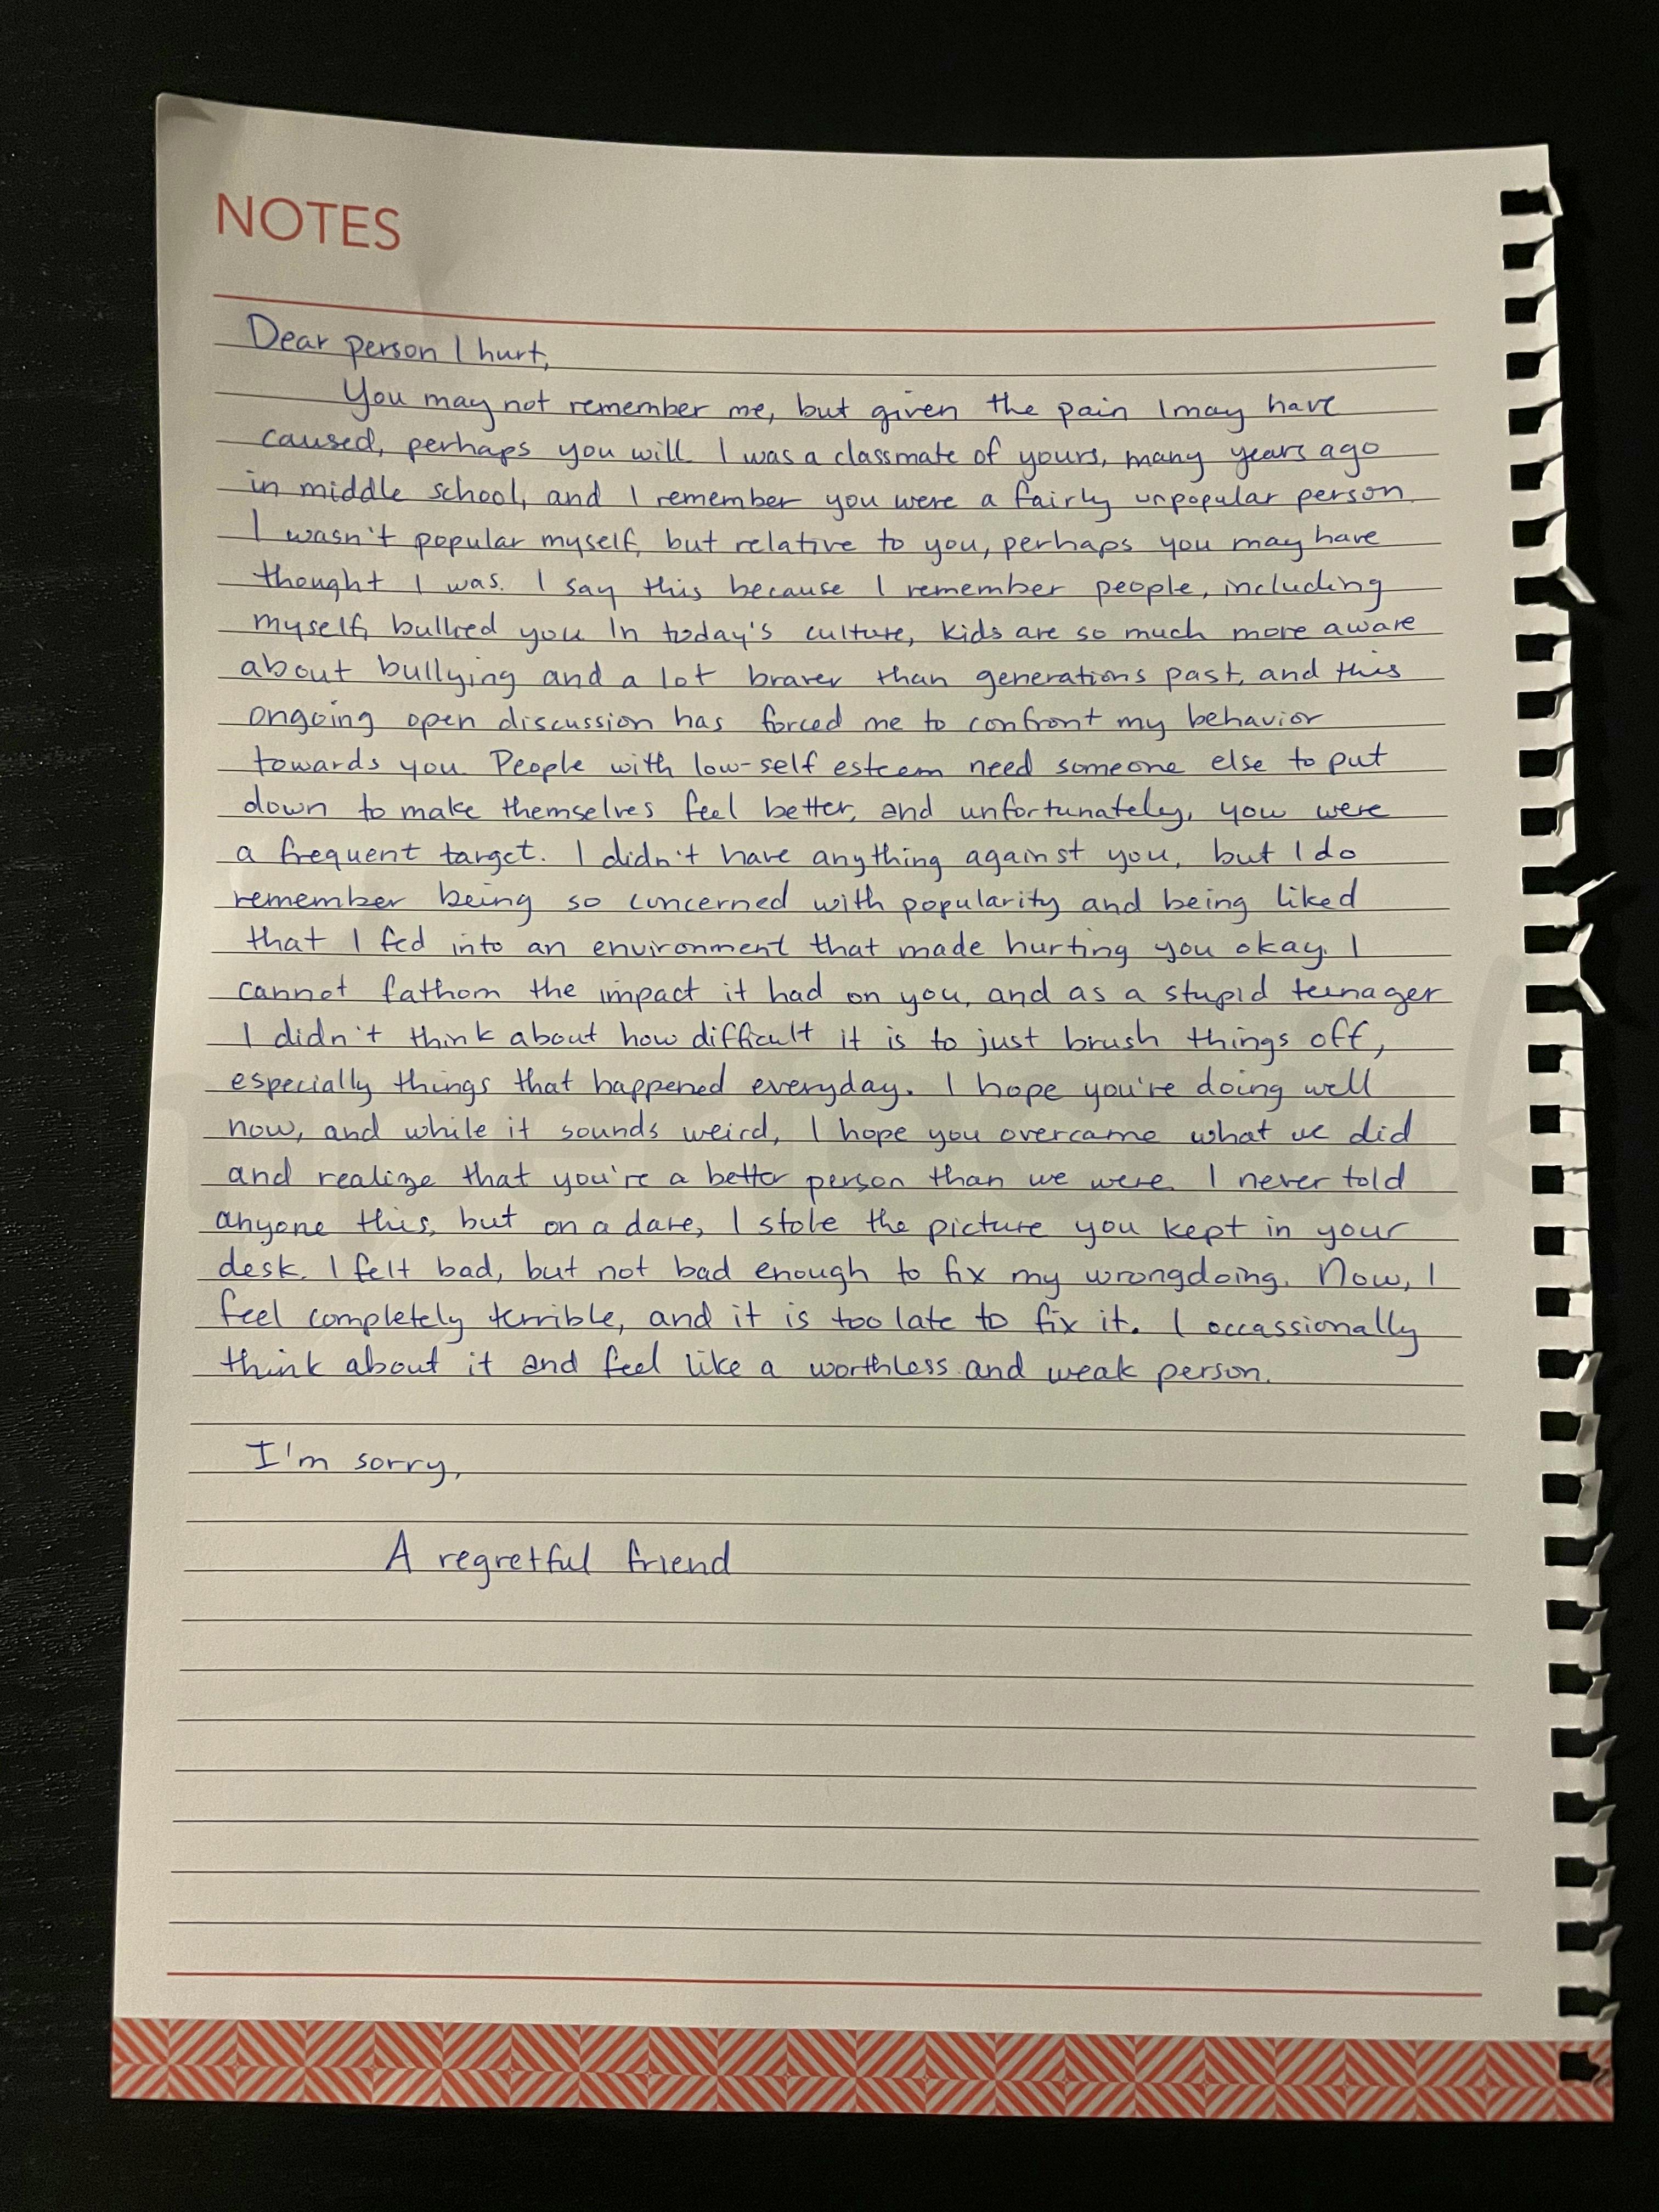 NOTES
Dear person I hurt,
You may not remember me, but given the pain I may have
caused, perhaps you will. I was a classmate of yours, many years ago
in middle school, and I remember you were a fairly unpopular person.
I wasn't popular myself, but relative to you, perhaps you may have
thought I was. I say this because I remember people, including
myself, bullied you. In today's culture, kids are so much more aware
about bullying and a lot braver than generations past, and this
ongoing open discussion has forced me to confront my behavior
towards you. People with low-self esteem need someone else to put
down to make themselves feel better, and unfortunately, you were
a frequent target. I didn't have anything against you, but I do
remember being so concerned with popularity and being liked
that I fed into an environment that made hurting you okay. I
cannot fathom the impact it had on you, and as a stupid teenager
I didn't think about how difficult it is to just brush things off,
especially things that happened everyday. I hope you're doing well
now, and while it sounds weird, I hope you overcame what we did
and realize that you're a better person than we were. I never told
anyone this, but on a dare, I stole the picture you kept in your
desk. I felt bad, but not bad enough to fix my wrongdoing. Now, I
feel completely terrible, and it is too late to fix it. I occassionally
think about it and feel like a worthless and weak person.
I'm sorry,
A regretful friend